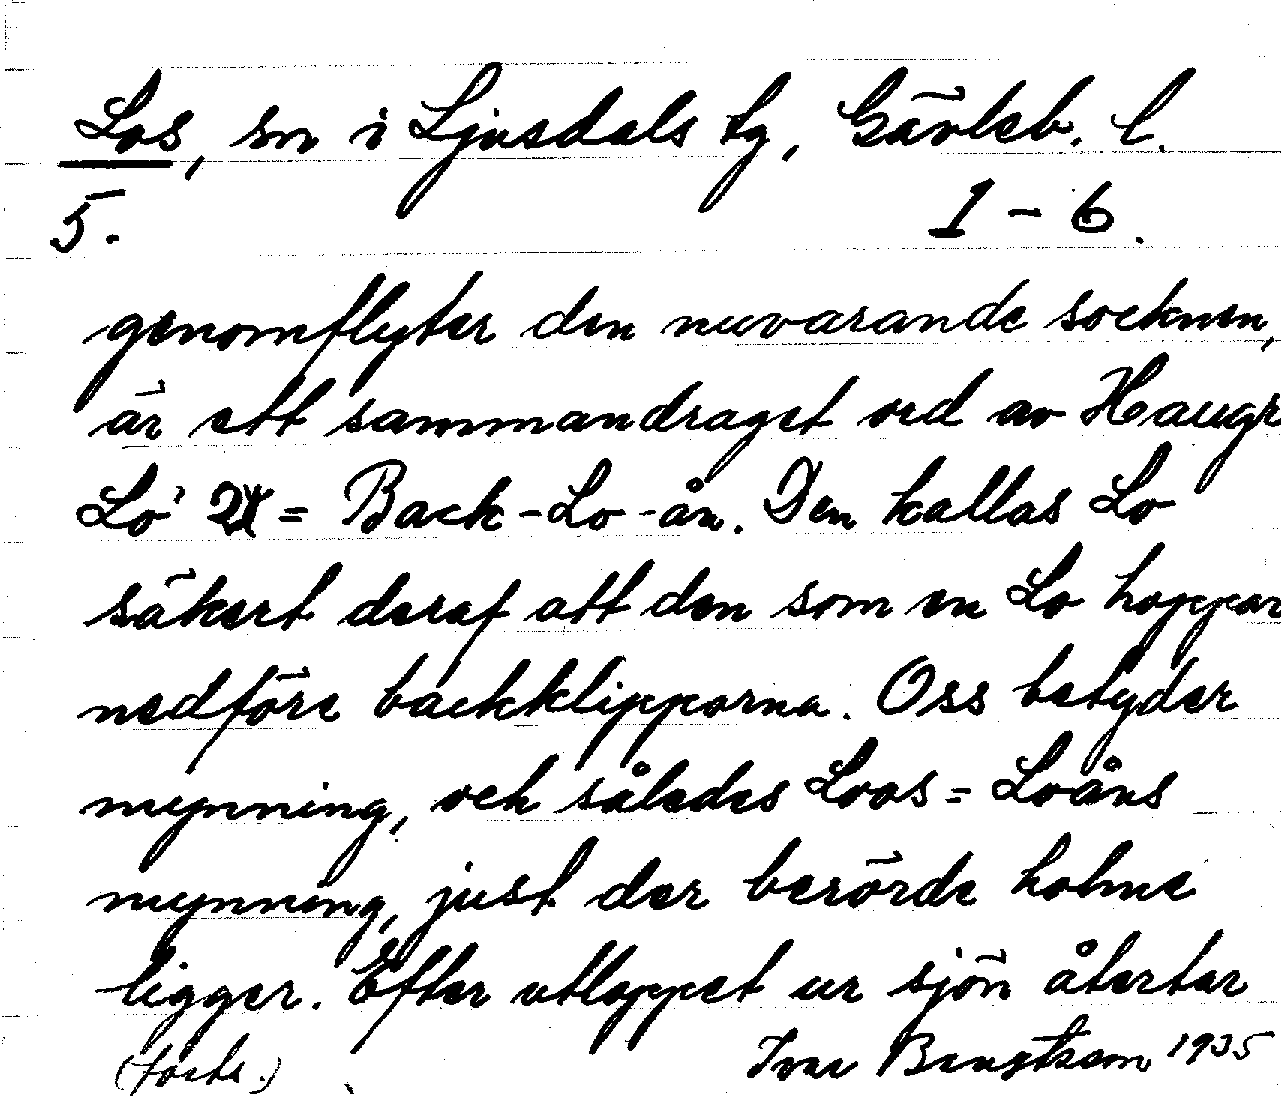 Los, sn i Ljusdals tg, Gävleb. l.
5. 1 - 6.
genomflyter den nuvarande socknen,
är ett sammandraget ord av Haugr
Lo' = Back-Lo-ån. Den kallas Lo
säkert deraf att den som en Lo hoppar
nedföre backklipporna. Oss betyder
mynning, och således Loos = Loåns
mynning, just der berörde holme
ligger. Efter utloppet ur sjön återtar
(forts.) Ivar Bengtsson 1935